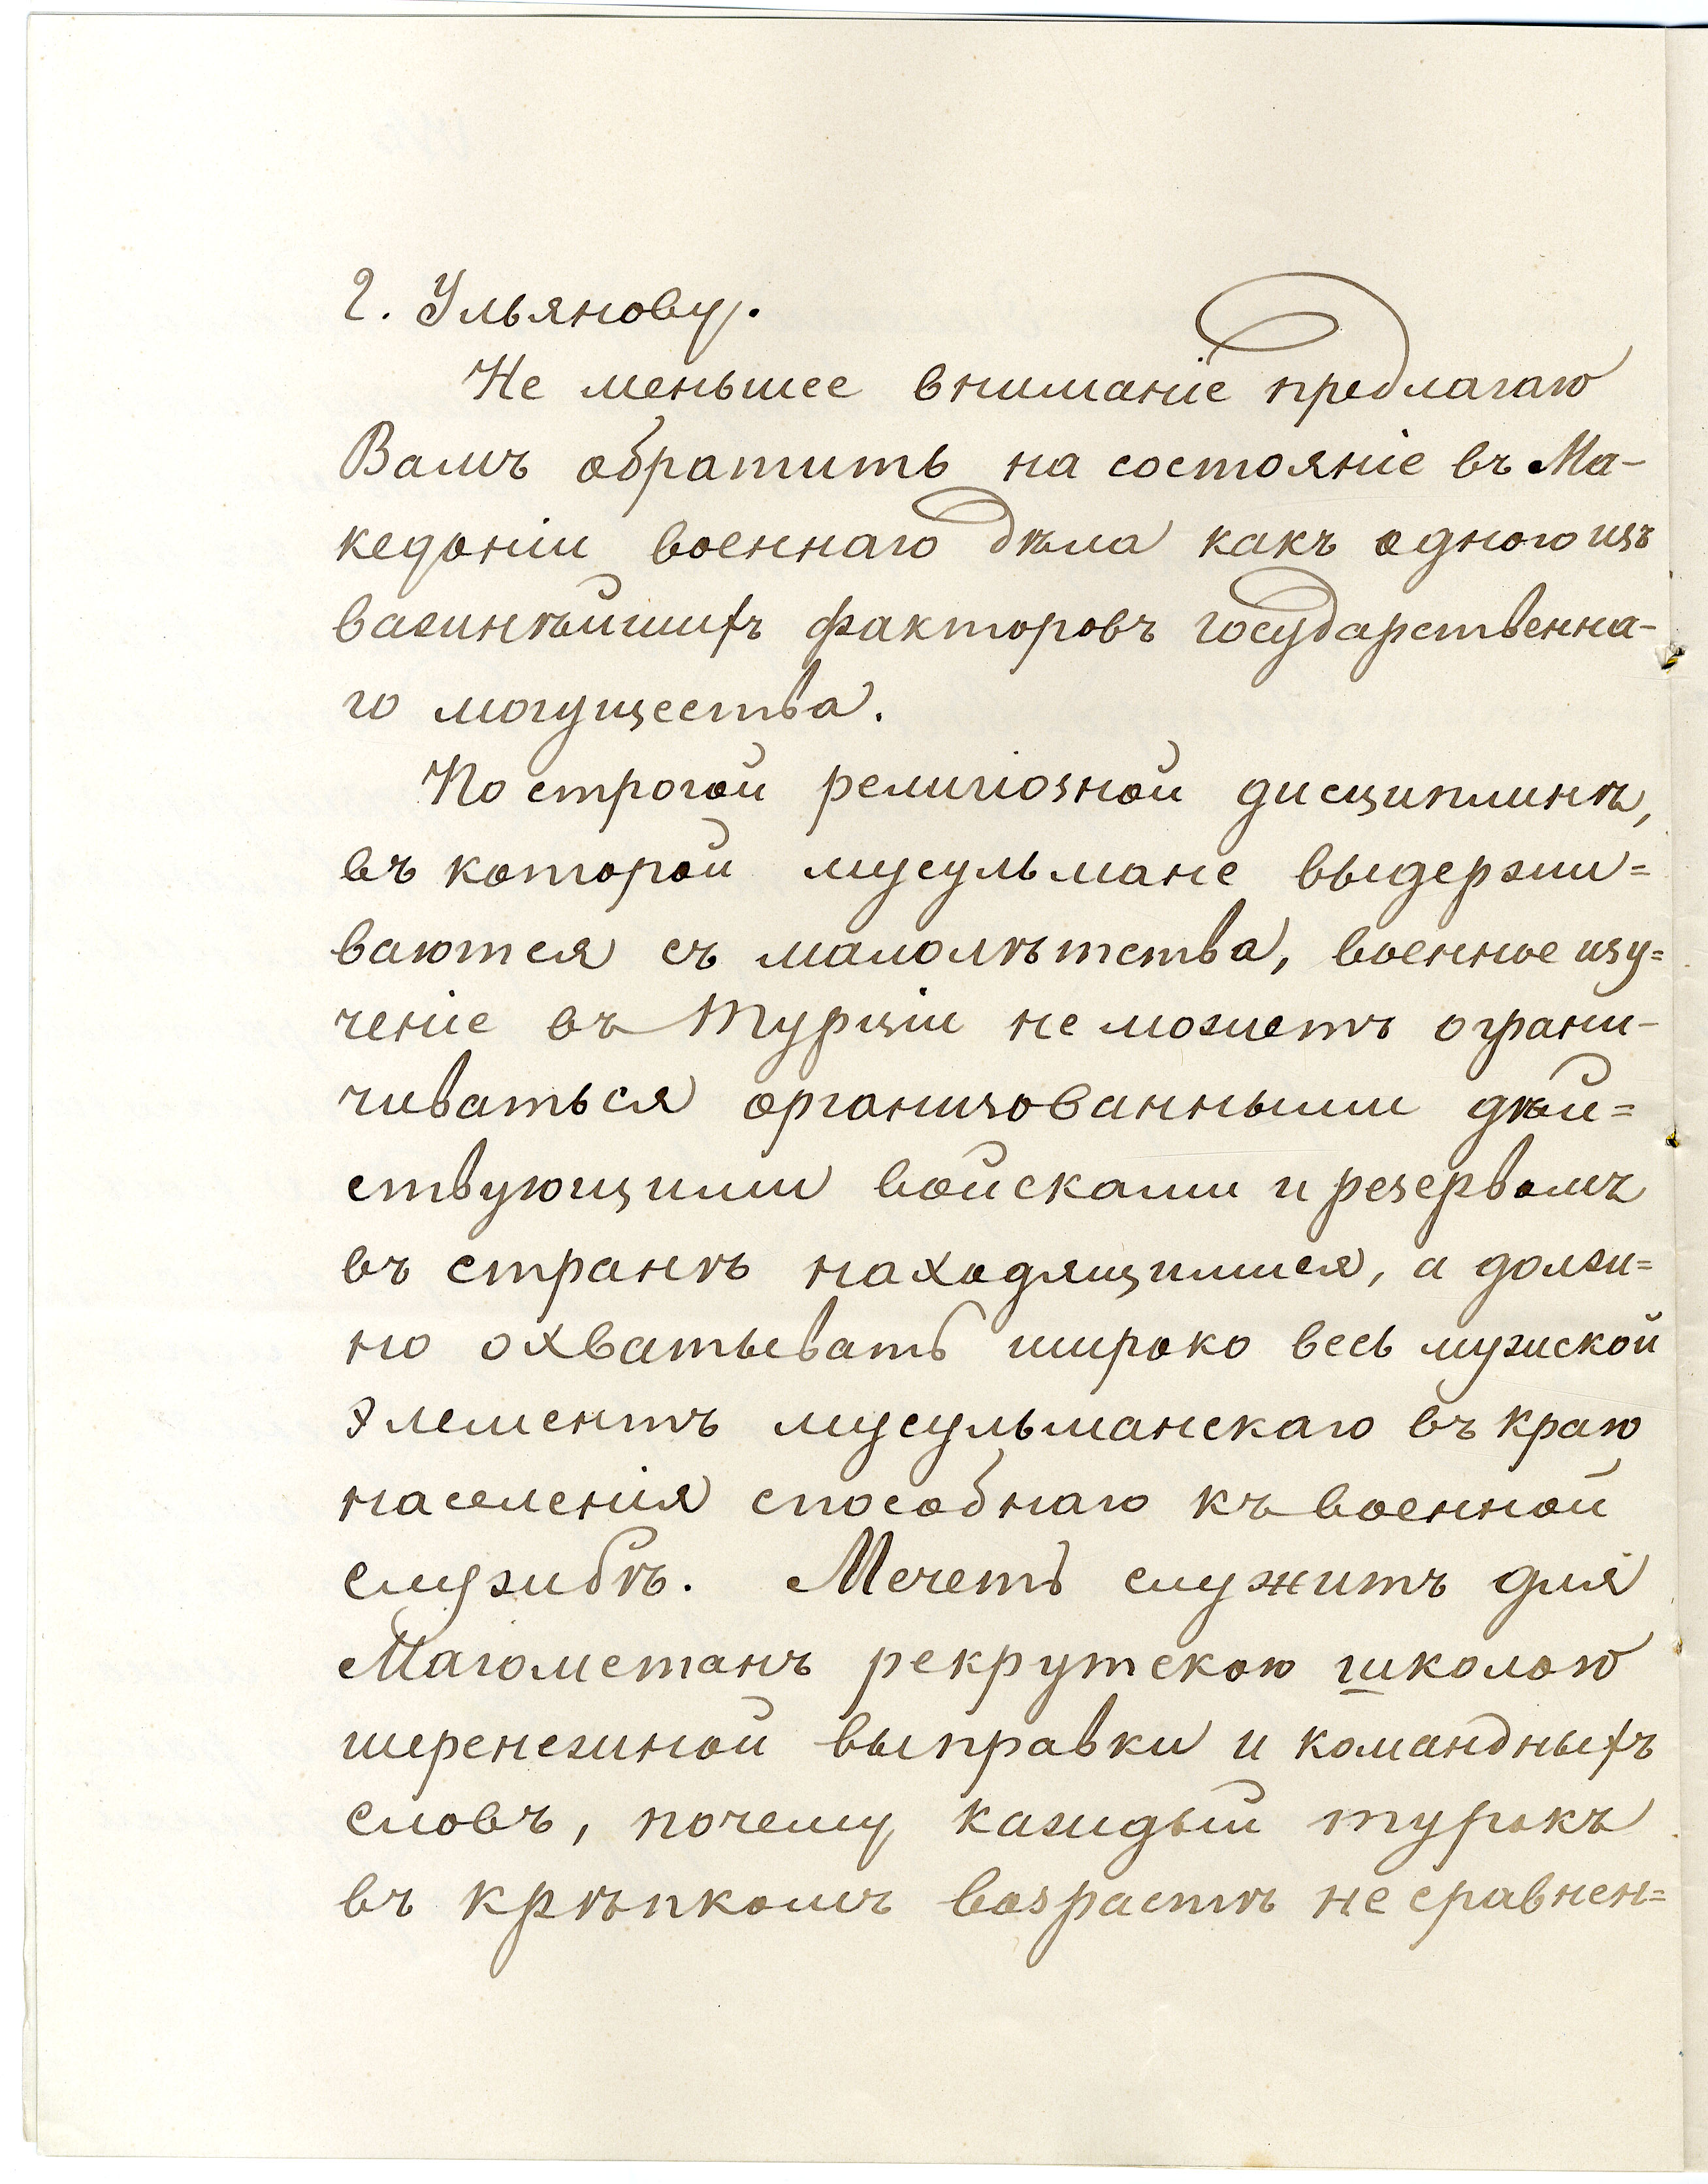 Г. Ульянову.
Не меньшее вниманіе предлагаю
Вамъ обратить на состояніе въ Ма-
кедоніи военнаго дѣла какъ одного изъ
важнѣйшихъ факторовъ государственна-
го могущества.
По строгой религіозной дисциплинѣ,
въ которой мусульмане выдержи=
ваются съ малолѣтства, военное изу=
ченіе въ Турціи не можетъ ограни-
чиваться организованными дѣй=
ствующими войсками и резервомъ
въ странѣ находящимися, а долж=
но охватывать широко весь мужской
элементъ мусульманскаго въ краю
населенія способнаго къ военной
службѣ. Мечеть служитъ для
Магометанъ рекрутскою школою
шереножной выправки и командныхъ
словъ, почему каждый турокъ
въ крѣпкомъ возрастѣ не сравнен=